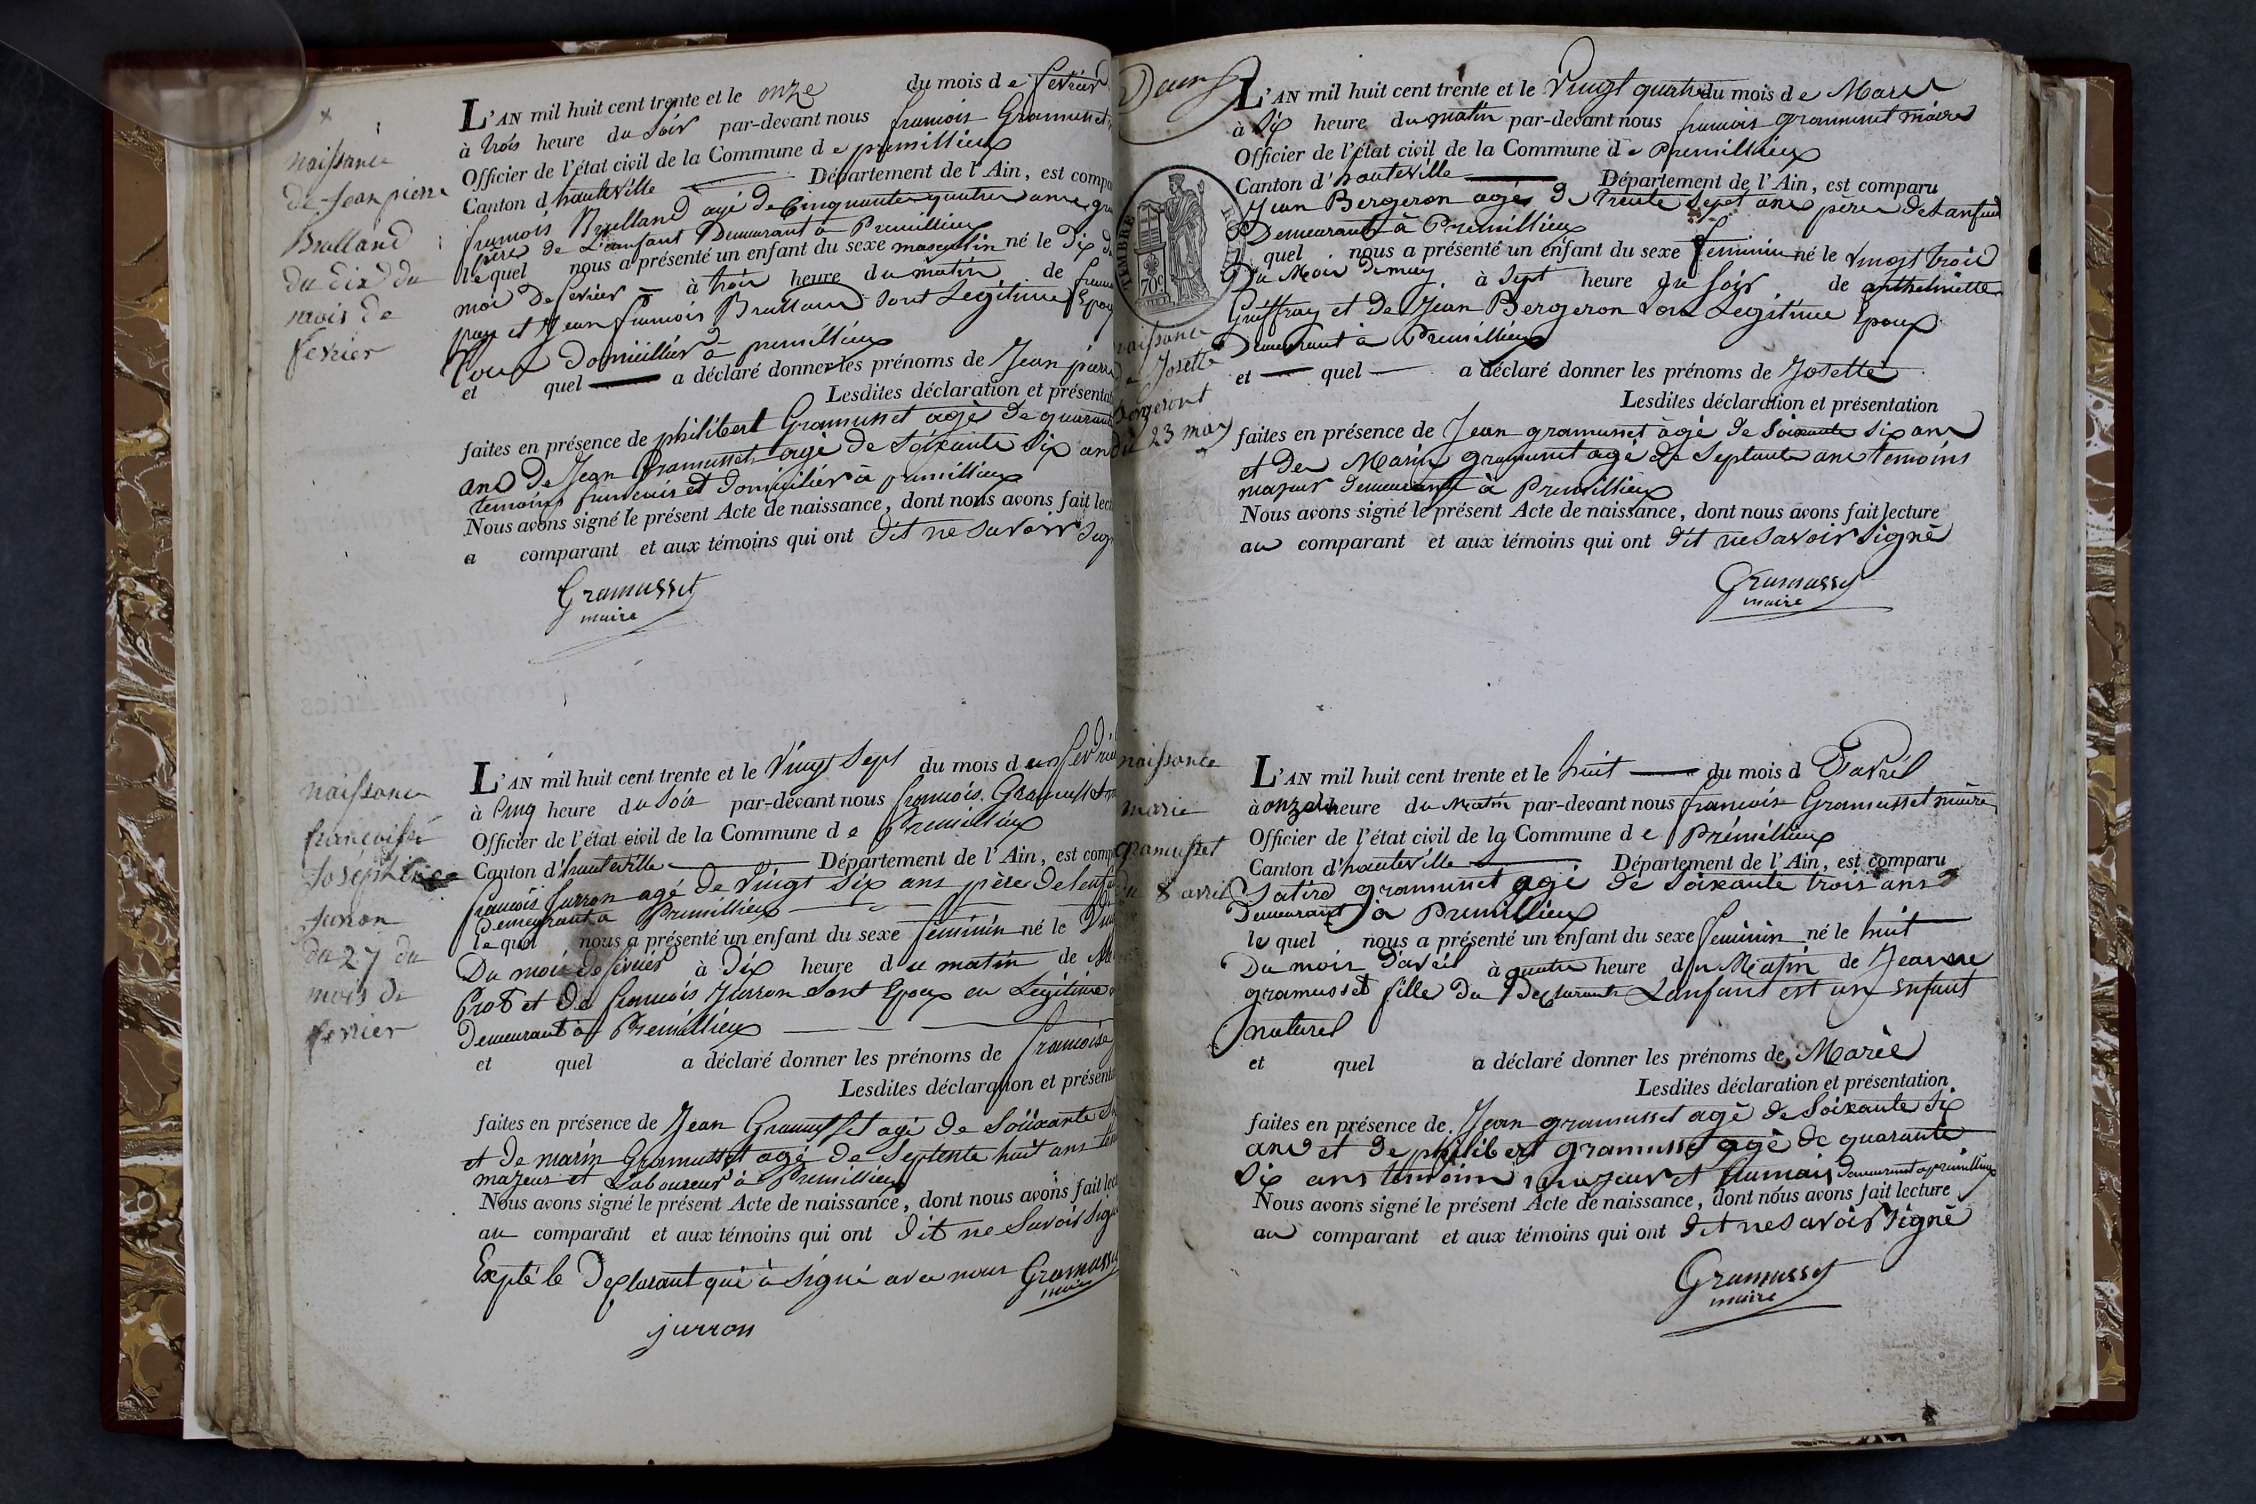 naissance
de Jean pierre
Brulland
du dix du
mois de
fevrier
L'AN mil huit cent trente et le onze du mois de fevrier
à trois heure du soir par-devant nous francois Gramusset
Officier de l'état civil de la Commune de premillieux
Canton d'hauteville Département de l'Ain, est comp
francois Brulland agé de Cinquante quatre ans
père de L'enfant Demeurant à Premillieux
lequel nous a présenté un enfant du sexe masculin né le Dix d
moi De fevrier à trois heure du matin de
pay et Jean francois Brulland sont Legitime Epou
tous Domicillier à premillieux
et quel a déclaré donner les prénoms de Jean pierre
Lesdites déclaration et présentat
faites en présence de philibert Gramusset agé de quarant
ans De Jean Gramusset agé de Soixante Six an
temoins francais et Domicilier à premillieux
Nous avons signé le présent Acte de naissance, dont nous avons fait lec
a comparant et aux témoins qui ont dit ne savoir sign
Gramusset
maire
naissance
françoise
Joséphine
Jurron
du 27 du
mois de
fevrier
L'AN mil huit cent trente et le Vingt Sept du mois de fevrie
à Cinq heure du Soir par-devant nous francois Gramusset
Officier de l'état civil de la Commune de Premillieux
Canton d'hauteville Département de l'Ain, est comp
francois Jurron agé de Vingt Six ans père de lenfa
Demeurant a Premillieux
lequel nous a présenté un enfant du sexe feminin né le
Du mois de fevrier à Dix heure du matin de
Prot et De francois Jurron sont Epoux en Legitime
Demeurant à Premillieux
et quel a déclaré donner les prénoms de francoise
Lesdites déclaration et présenta
faites en présence de Jean Gramusset agé de Soixante
et De marin Gramusset agé De Septente huit ans tem
majeur et Laboureur à Premillieux
Nous avons signé le présent Acte de naissance, dont nous avons fait lec
au comparant et aux témoins qui ont dit ne Savoir Sign
Expté le Déclarant qui à signé avec nous Gramusset
maire
jurron
Deux
TIMBRE
70c
naissance
de Josette
Bergeront
du 23 may
L'AN mil huit cent trente et le Vingt quatre du mois de Mars
à Six heure du matin par-devant nous francois gramusset maire
Officier de l'état civil de la Commune de Premillieux
Canton d'hauteville Département de l'Ain, est comparu
Jean Bergeron agé de trente Sept ans père de Lanfant
Demeurant à Premillieux
l quel nous a présenté un enfant du sexe feminin né le vingt trois
Du Mois de may à Sept heure du soir de anthelmette
Guiffray et De Jean Bergeron son Legitime Epoux
Demeurant à Premillieux
et quel a déclaré donner les prénoms de Josette
Lesdites déclaration et présentation
faites en présence de Jean gramusset agé de Soixante six ans
et De Marin gramusset agé de Septante ans temoins
majeur demeurant à Premillieux
Nous avons signé le présent Acte de naissance, dont nous avons fait lecture
au comparant et aux témoins qui ont dit ne Savoir Signé
Gramusset
maire
naissance
marie
gramusset
du 8 avril
L'AN mil huit cent trente et le huit du mois d'avril
à onze heure du Matin par-devant nous francois Gramusset maire
Officier de l'état civil de la Commune de Prémillieux
Canton d'hauteville Département de l'Ain, est comparu
gramusset agé de Soixante trois ans
Demeurant à Premillieux
le quel nous a présenté un enfant du sexe feminin né le huit
Du mois d'avril à quatre heure du Matin de Jeanne
gramusset fille Du Declarant Lanfant est un Enfant
naturel
et quel a déclaré donner les prénoms de Marie
Lesdites déclaration et présentation
faites en présence de Jean gramusset agé de Soixante Six
ans et de philibert gramusset agé de quarante
Six ans temoins majeur et demeurant a premillieux
Nous avons signé le présent Acte de naissance, dont nous avons fait lecture
au comparant et aux témoins qui ont dit ne Savoir Signé
Gramusset
maire